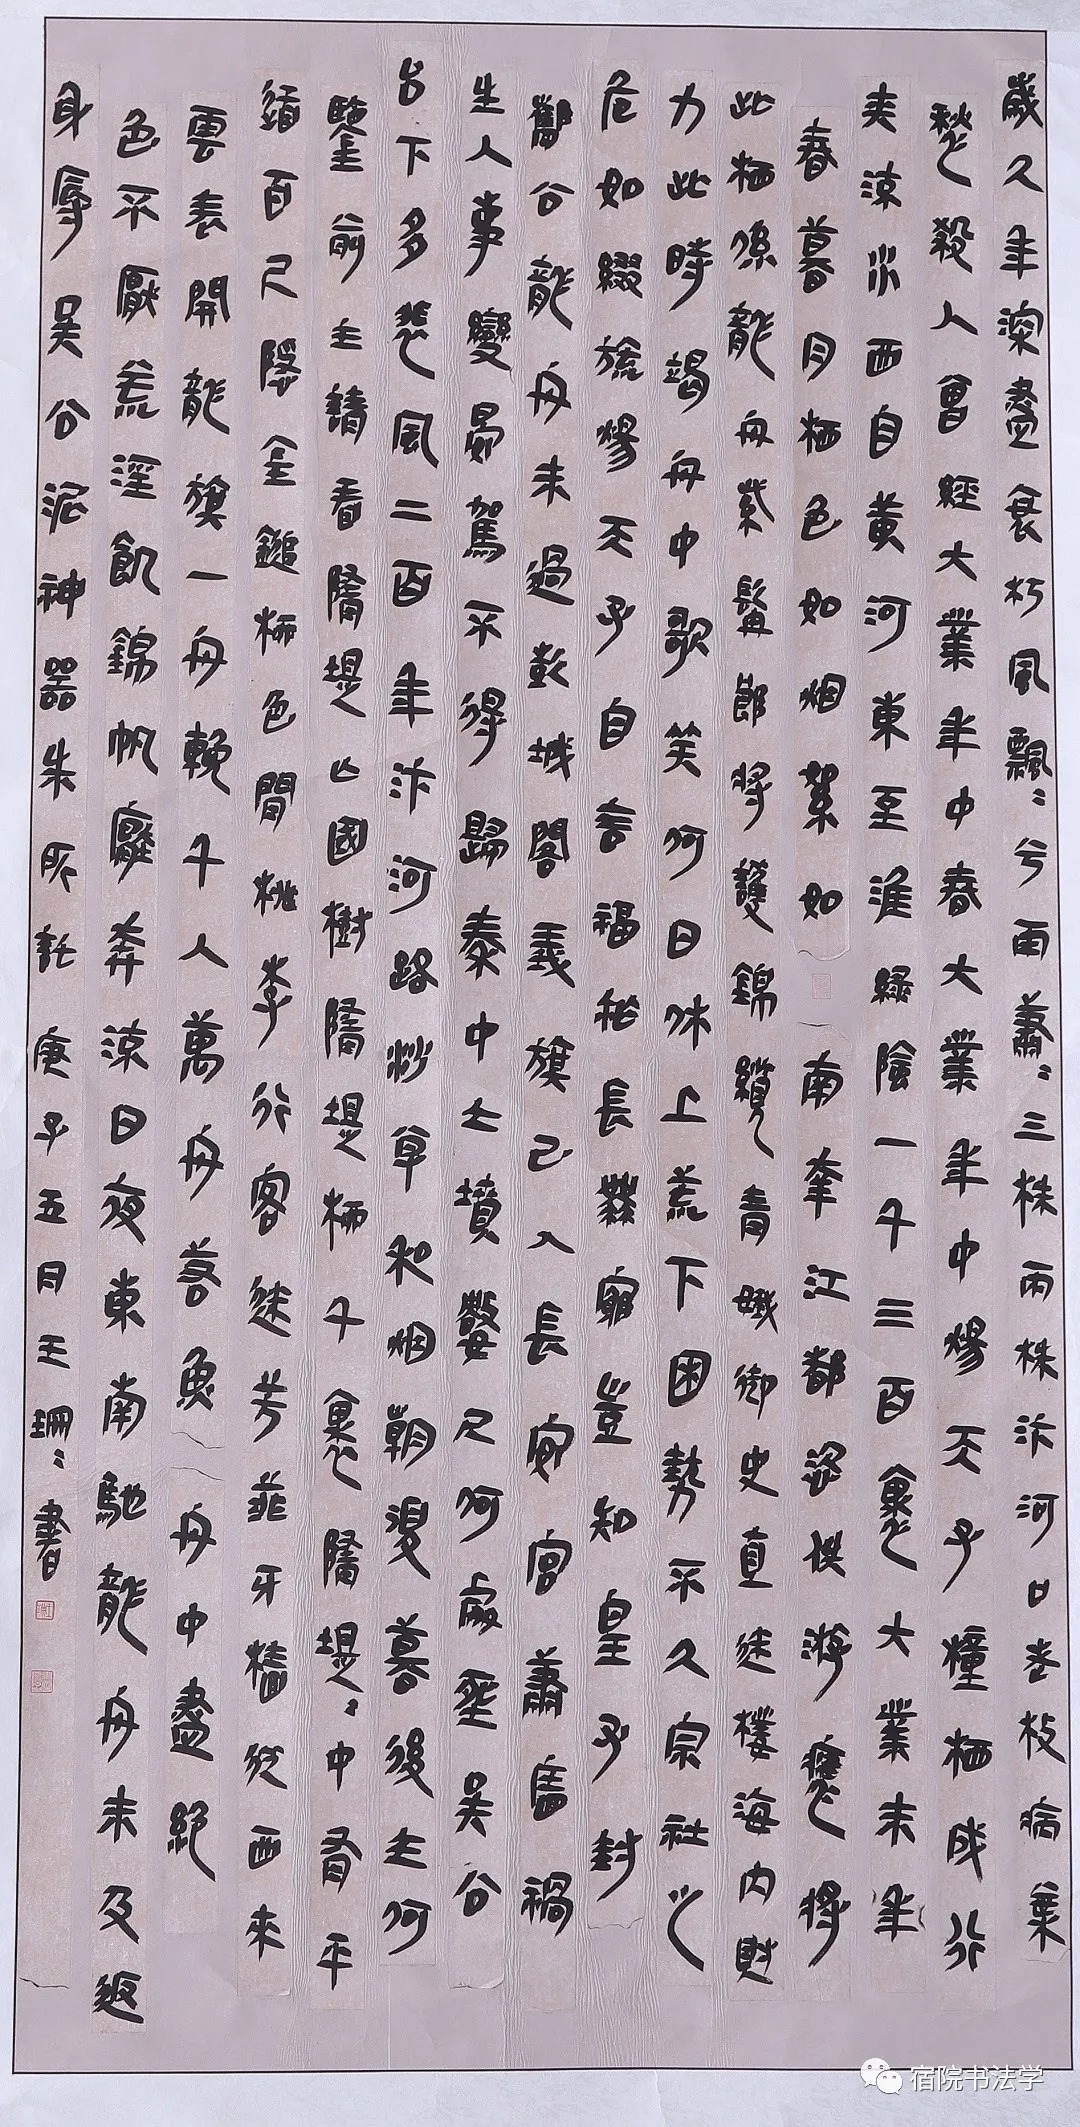 歲久年深盡衰朽風飄〻兮雨蕭〻三株兩株汴河口老枝病葉
愁殺人曾經大業年中春大業年中煬天子種柳成行
夾流水西自黃河東至淮綠陰一千三百里大業末年
春暮月柳色如烟絮如南幸江都恣佚游應將
此柳係龍舟紫髯郎將護錦纜青娥御史直迷樓海內財
力此時竭舟中歌笑何日休上荒下困勢不久宗社之
危如綴旒煬天子自言福祚長無窮豈知皇子封
酅公龍舟未過彭城閣義旗已入長安宮蕭墻禍
生人事變晏駕不得歸秦中土墳數尺何處葬吳公
台下多悲風二百年汴河路沙草和烟朝復暮後王何
鑒前王請看隋堤亡國樹隋堤柳千里隋堤〻中有平
道百尺隱金鎚柳色間桃李行客迷芳菲牙檣從西來
雲表開龍旗一舟輓千人萬舟若魚舟中盡絕
色不厭荒淫飢錦帆奔涼日夜東南馳龍舟未及返
身辱吳公泥神器朱所託庚子五月王珊〻書
宿院书法学